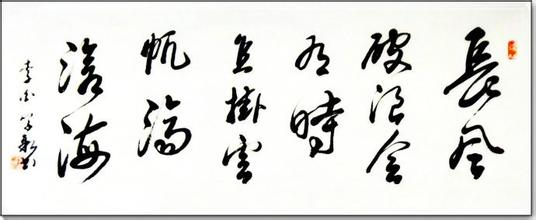 長風
破浪会
有時
直掛雲
帆濟
滄海
李白